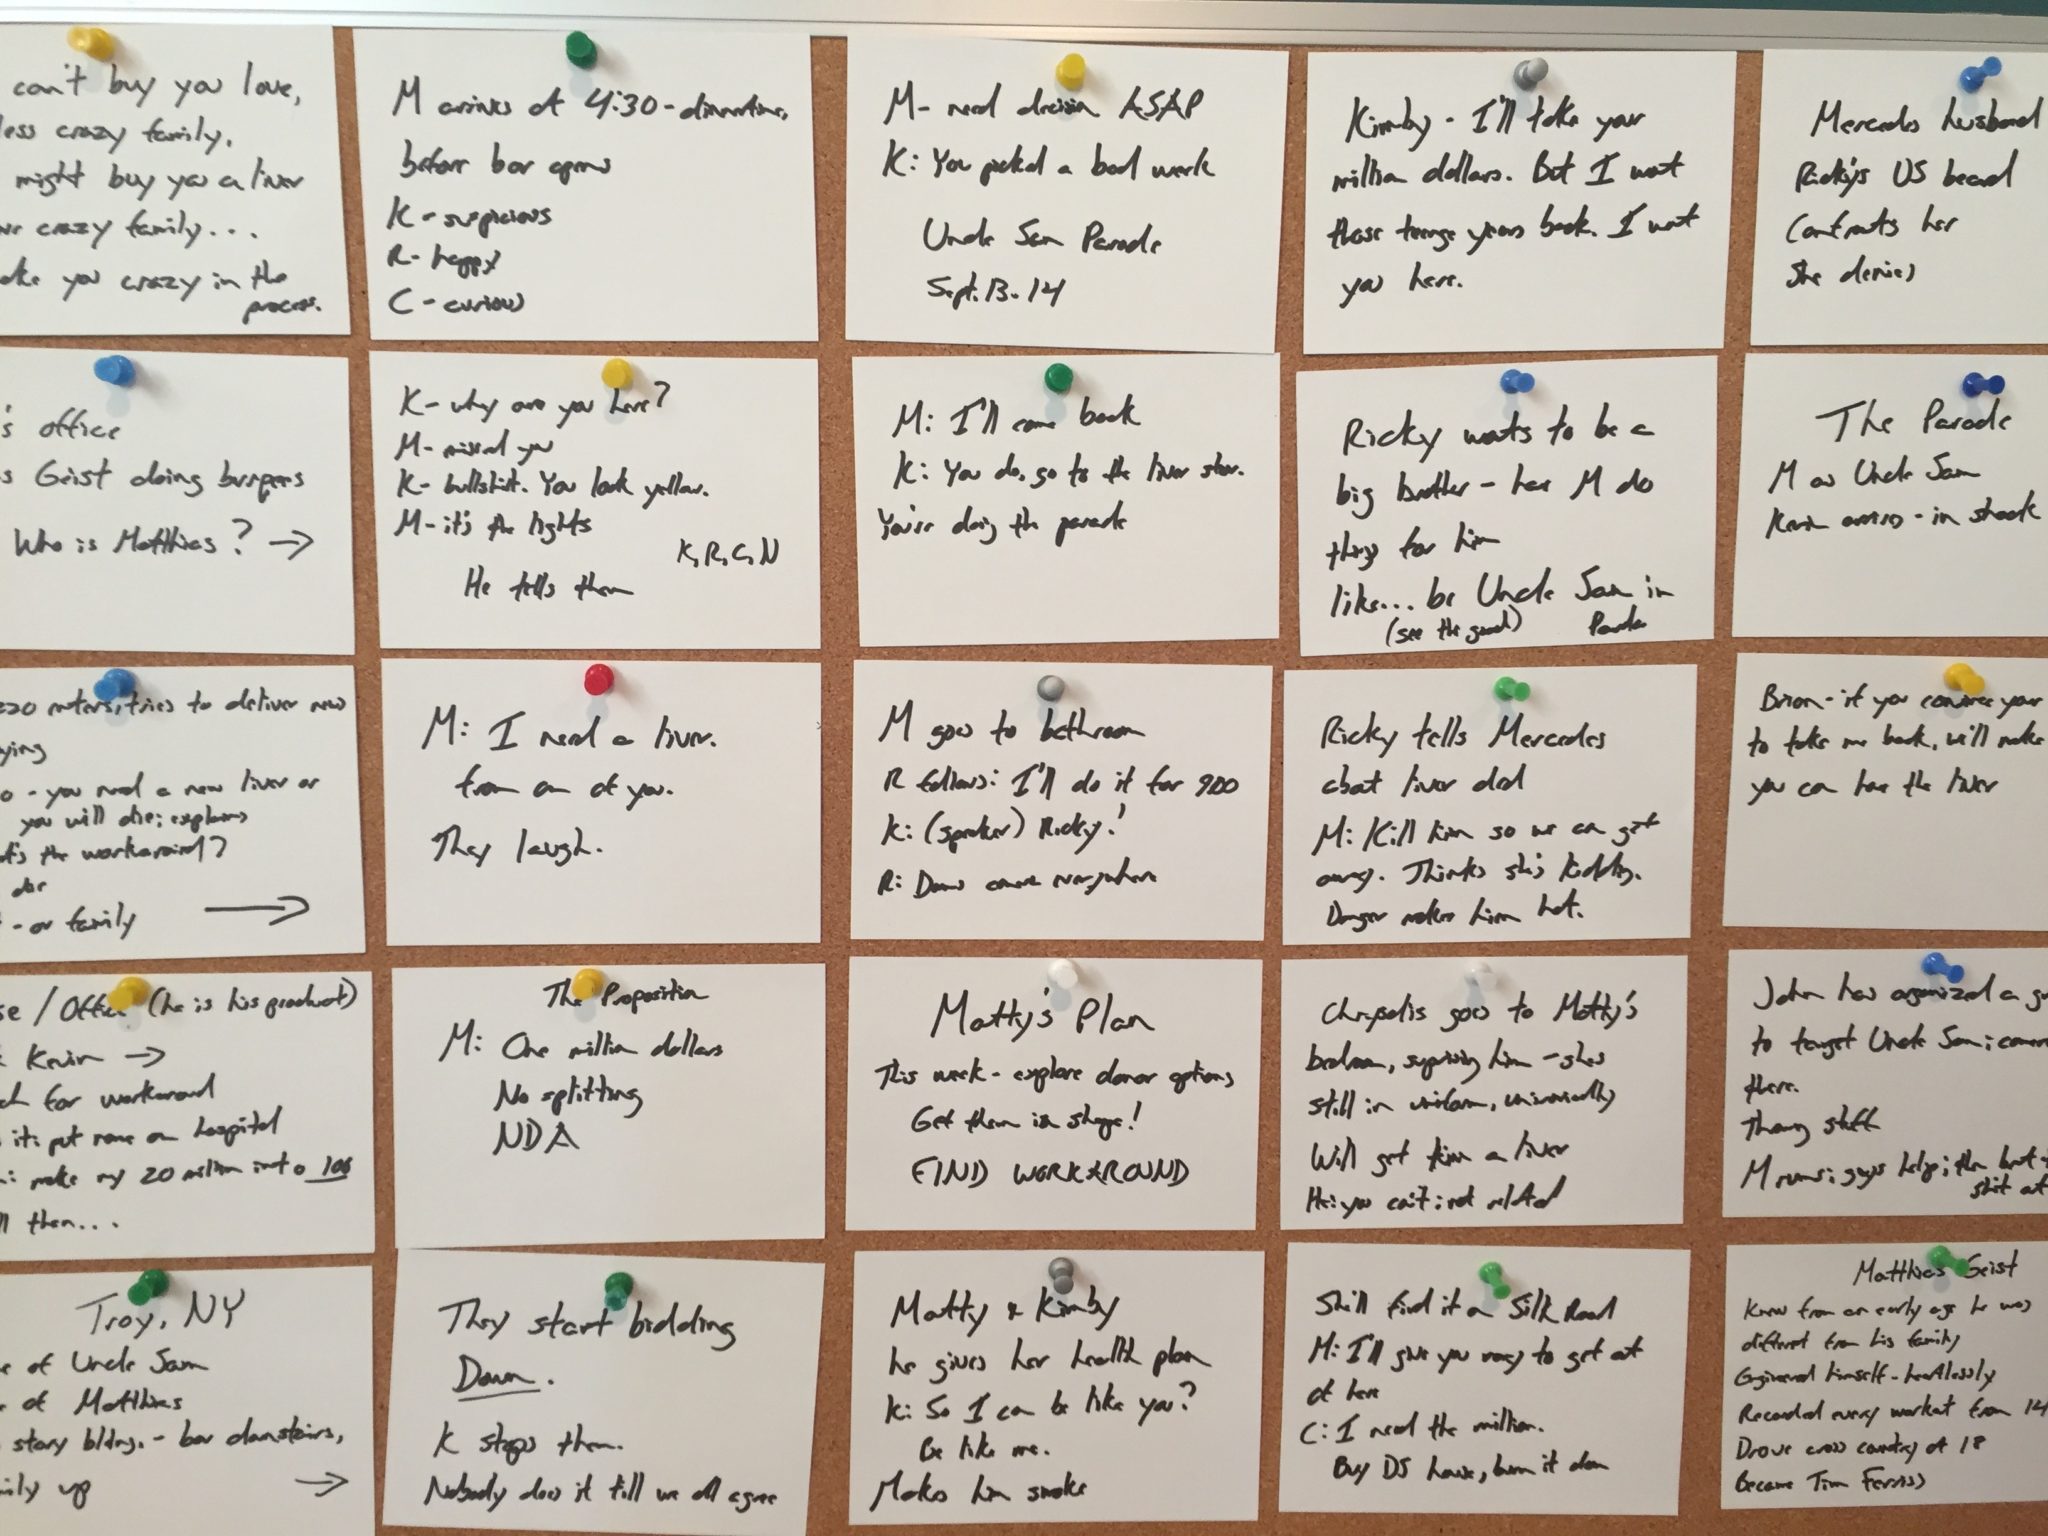 can't buy you love,
less crazy family.
might buy you a liver
crazy family...
you crazy in the
process.
M arrives at 4:30 - dinnertime,
before bar opens
K - suspicious
R - happy
C - curious
M - need decision ASAP
K: You picked a bad week
Uncle Sam Parade
Sept. 13-14
Kimby - I'll take your
million dollars. But I want
those teenage years back. I want
you here.
Mercedes husband
Ricky's US beard
Confronts her
She denies
's office
Geist doing burpees
Who is Matthias? →
K - why are you here?
M - missed you
K - bullshit. You look yellow.
M - it's the lights
K, R, C, N
He tells them
M: I'll come back
K: You do, go to the liver store.
You're doing the parade
Ricky wants to be a
big brother - has M do
things for him
like... be Uncle Sam in
(see the good) Parade
The Parade
M as Uncle Sam
Kevin arrives - in shock
enters, tries to deliver news
- you need a new liver or
you will die; explains
the workaround?
- or family →
M: I need a liver.
from one of you.
They laugh.
M goes to bathroom
R follows: I'll do it for 900
K: (speaker) Ricky!
R: Dans comes everywhere
Ricky tells Mercedes
about liver deal
M: Kill him so we can get
away. Thinks she's kidding.
Danger makes him hot.
Brian - if you convince your
to take me back, we'll make
you can have the liver
/ Office (he is his product)
Kevin →
for workaround
it: put name on hospital
: make my 20 million into 106
then...
The Proposition
M: One million dollars
No splitting
NDA
Matty's Plan
This week - explore donor options
Get them in shape!
FIND WORKAROUND
Chrysalis goes to Matty's
bedroom, surprising him - she's
still in uniform, university
Will get him a liver
He: you can't: not related
John has organized a
to target Uncle Sam;
there.
Throwing stuff
M runs; guys help; then
shit out
Troy, NY
of Uncle Sam
of Matthias
story bldng. - bar downstairs,
up →
They start bidding
Down.
K stops them.
Nobody does it till we all agree
Matty & Kimby
he gives her health plan
K: So I can be like you?
Be like me.
Makes him smoke
She'll find it on Silk Road
M: I'll give you money to get out
of here
C: I need the million.
Buy DS house, burn it down
Matthias Geist
Knew from an early age he was
different from his family
Engineered himself - heartlessly
Recorded every workout from 14
Drove cross country at 18
Became Tim Ferriss